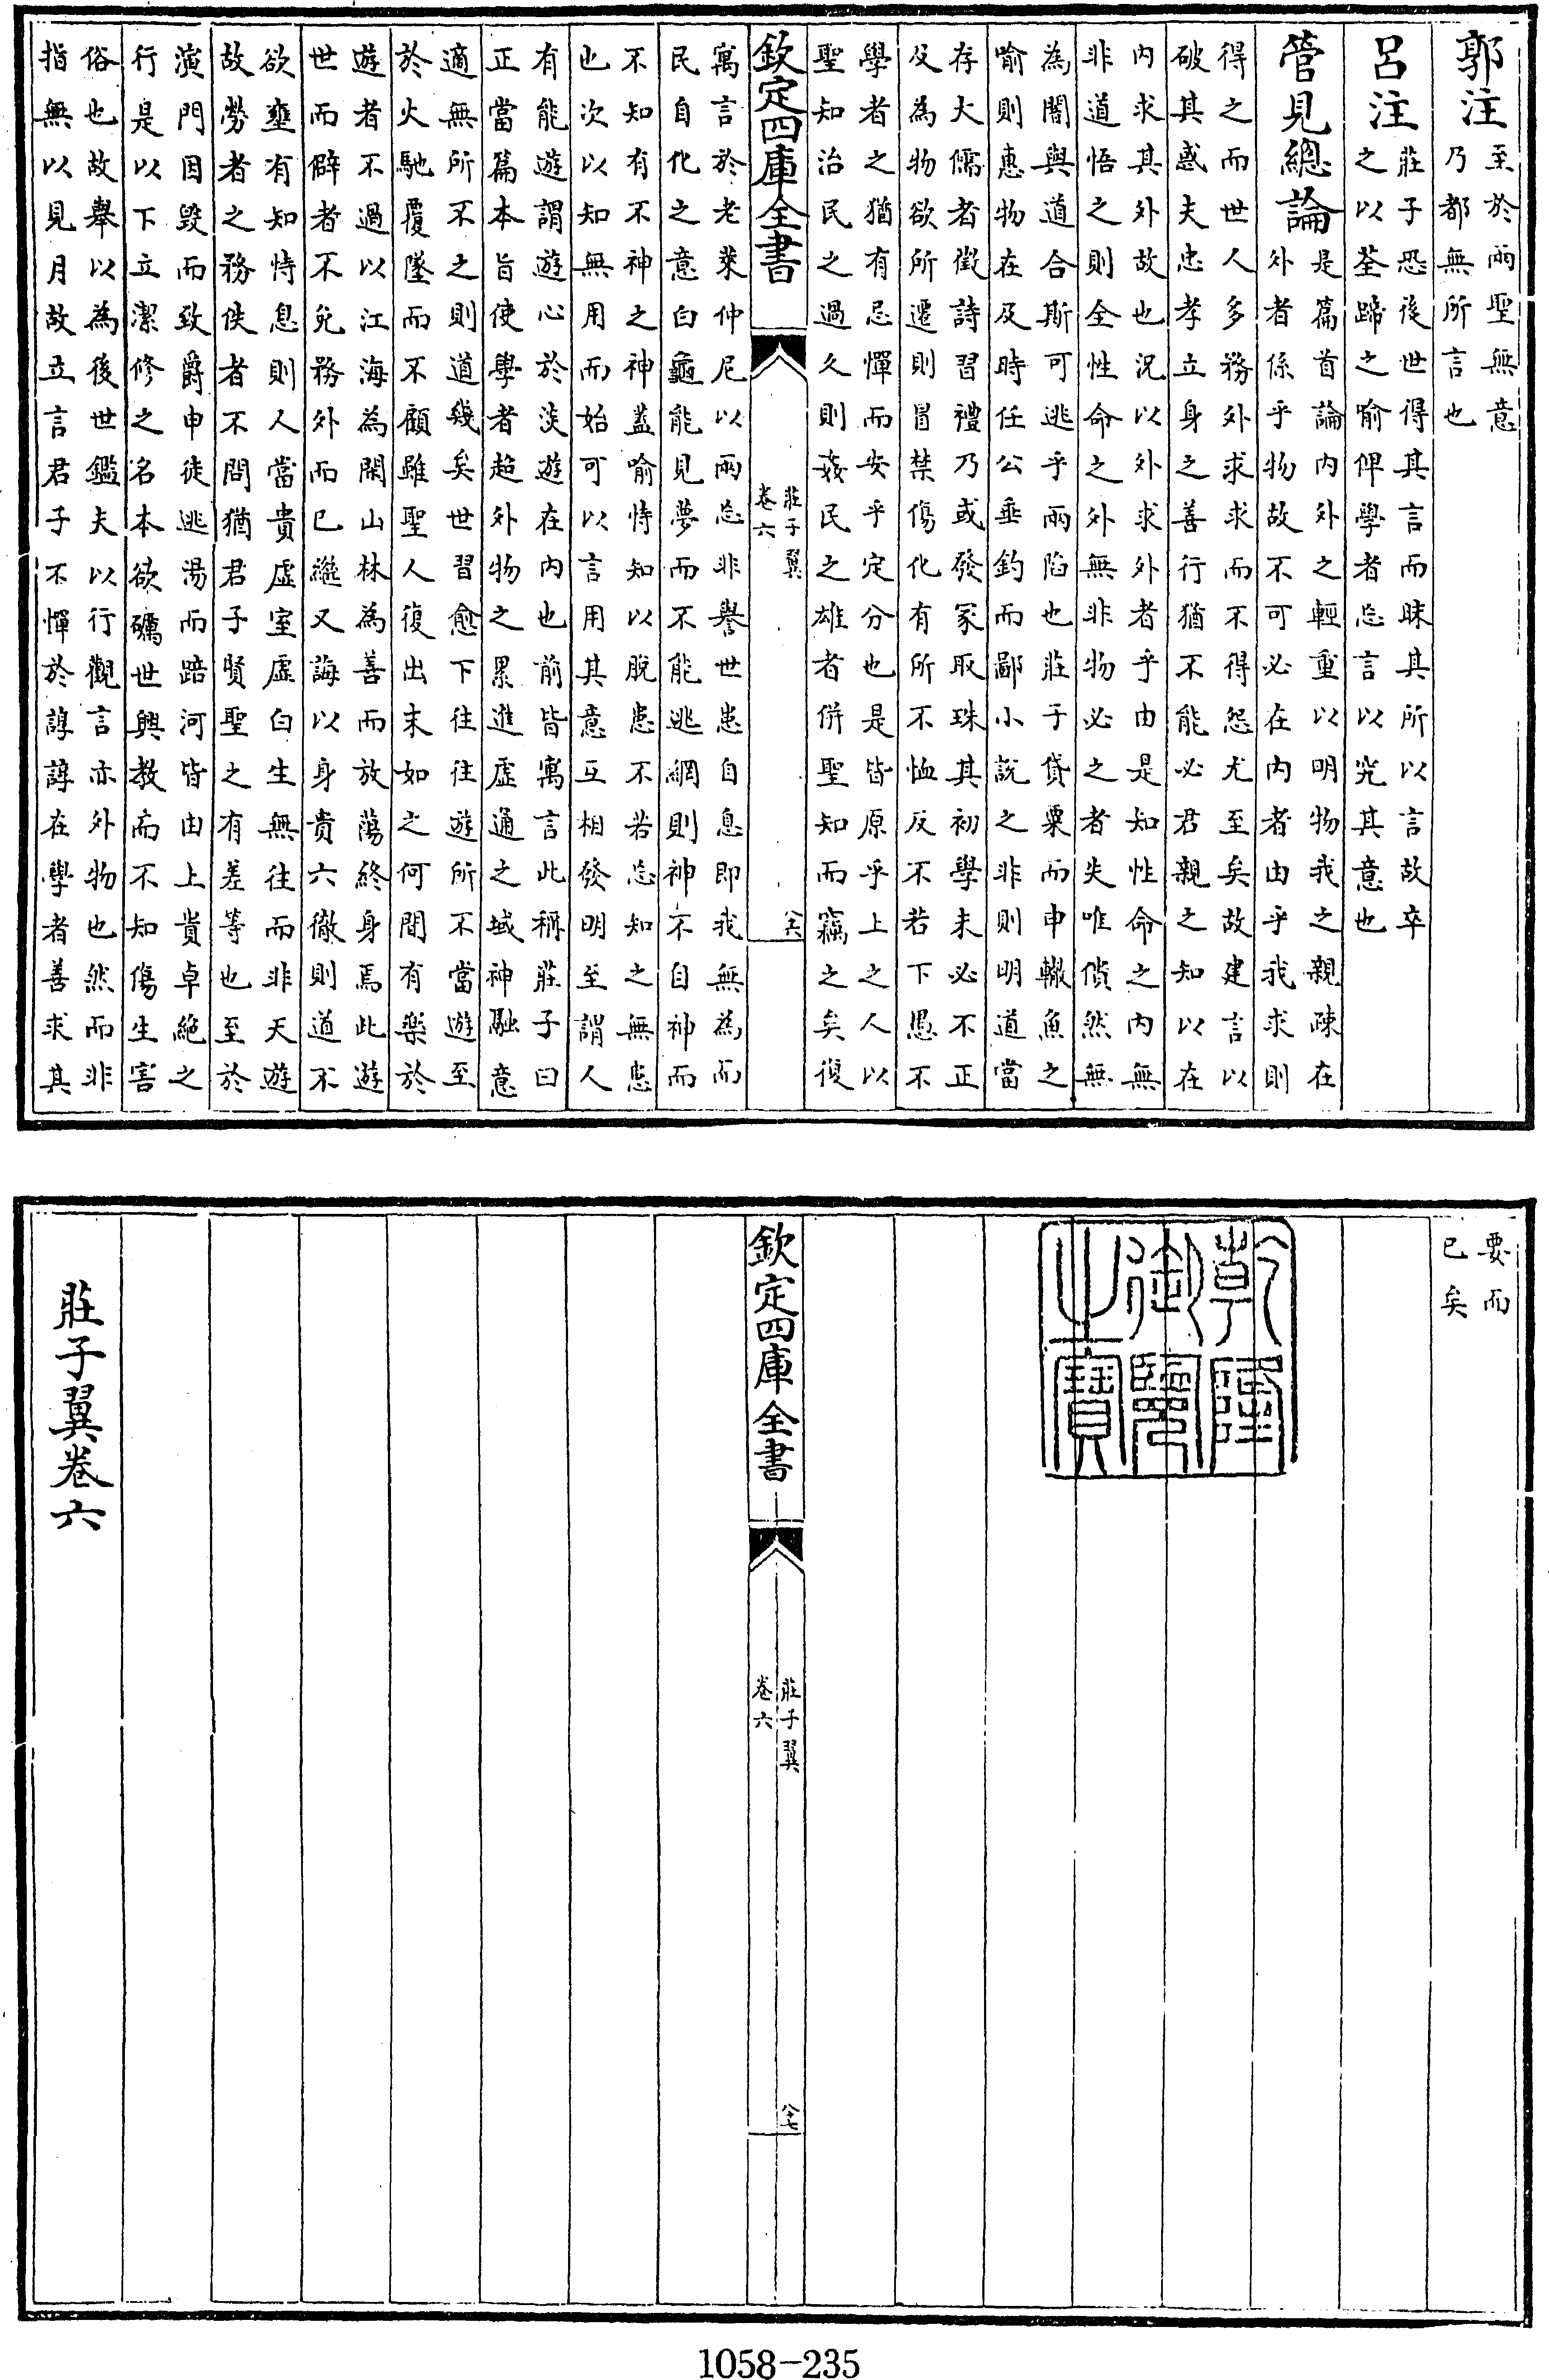 郭注至於兩聖無意
乃都無所言也
呂注莊子恐後世得其言而昧其所以言故卒
之以荃蹄之喻俾學者忘言以究其意也
管見總論是篇首論内外之輕重以明物我之親疎在
外者係乎物故不可必在内者由乎我求則
得之而世人多務外求求而不得怨尤至矣故建言以
破其惑夫忠孝立身之善行猶不能必君親之知以在
内求其外故也況以外求外者乎由是知性命之内無
非道悟之則全性命之外無非物必之者失唯儻然無
為闇與道合斯可逃乎兩陷也莊子貸粟而申轍魚之
喻則惠物在及時任公垂釣而鄙小說之非則明道當
存大儒者徵詩習禮乃或發冢取珠其初學未必不正
及為物欲所遷則冒禁傷化有所不恤反不若下愚不
學者之猶有忌憚而安乎定分也是皆原乎上之人以
聖知治民之過久則姦民之雄者併聖知而竊之矣復
欽定四庫全書
莊子翼
卷六
六十六
寓言於老萊仲尼以兩忘非譽世患自息即我無為而
民自化之意白龜能見夢而不能逃網則神不自神而
不知有不神之神蓋喻恃知以脫患不若忘知之無患
也次以知無用而始可以言用其意互相發明至謂人
有能遊謂遊心於淡遊在内也前皆寓言此稱莊子曰
正當篇本旨使學者超外物之累進虛通之域神融意
適無所不之則道幾矣世習愈下往往遊所不當遊至
於火馳覆墜而不顧雖聖人復出末如之何間有樂於
遊者不過以江海為閒山林為善而放蕩終身焉此遊
世而僻者不免務外而已繼又誨以身貴六徹則道不
欲壅有知恃息則人當貴虛室虛白生無往而非天遊
故勞者之務佚者不問猶君子賢聖之有差等也至於
演門因毀而致爵申徒逃湯而踣河皆由上貴卓絶之
行是以下立潔修之名本欲礪世興教而不知傷生害
俗也故舉以為後世鑑夫以行觀言亦外物也然而非
指無以見月故立言君子不憚於諄諄在學者善求其
要而
已矣
乾隆
御覽
之寶
欽定四庫全書
莊子翼
卷六
六十七
莊子翼卷六
1058-235